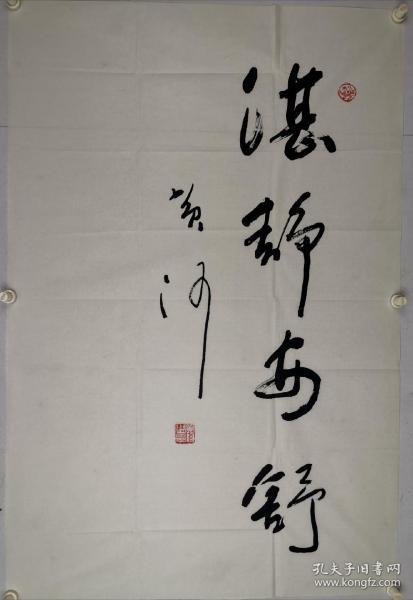 湛静安舒
黄河
孔夫子旧书网
www.kongfz.com